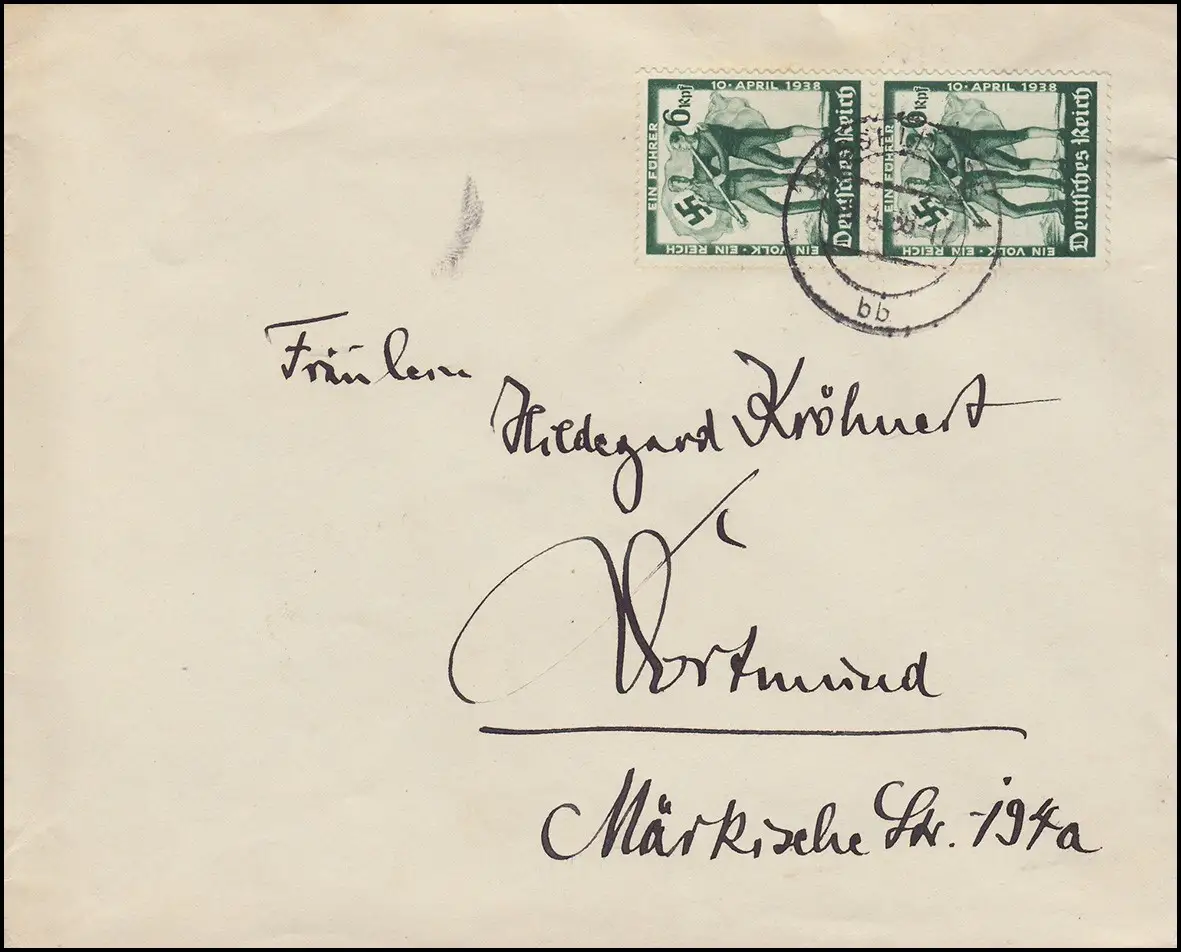 10 · APRIL 1938
6 Rpf
EIN FÜHRER
Deutsches Reich
EIN VOLK · EIN REICH
10 · APRIL 1938
6 Rpf
EIN FÜHRER
Deutsches Reich
EIN VOLK · EIN REICH
bb
Fräulein
Hildegard Kröhnert
Dortmund
Märkische Str. 194a